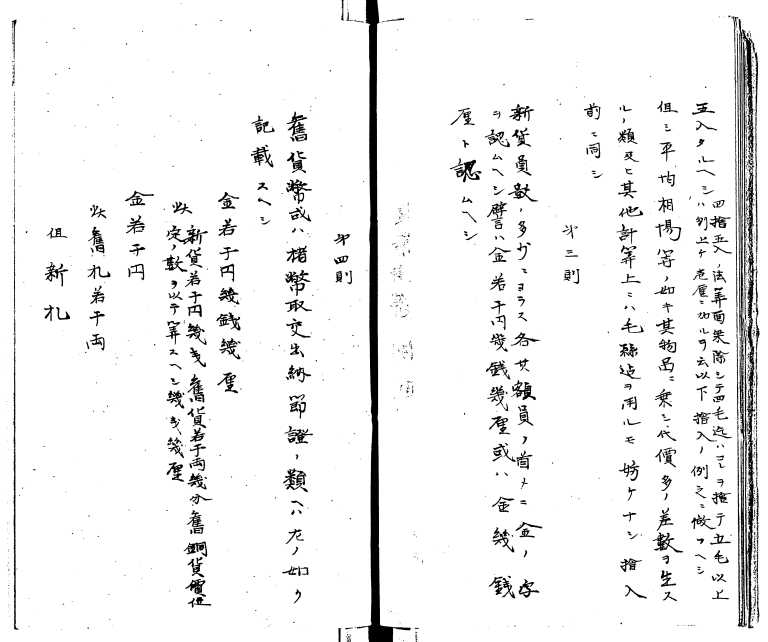 五入タルヘシ
四捨五入ノ法算面乗除シテ四毛迄ハコレヲ捨テ五毛以上
ハ列上ケ壱厘ニ加ルヲ云以下捨入ノ例之ニ倣フヘシ
但シ平均相場等ノ如キ其物品ニ乗シ代價多ノ差數ヲ生ス
ルノ類及ヒ其他計算上ニハ毛絲迄ヲ用ルモ妨ケナシ捨入
前ニ同シ
第三則
新貨員數ノ多少ニヨラス各其額員ノ首メニ金ノ字
ヲ認ムヘシ譬ハ金若干円幾銭幾厘或ハ金幾銭
厘ト認ムヘシ
第四則
舊貨幣或ハ楮幣取交出納節證ノ類ヘハ左ノ如ク
記載スヘシ
金若干円幾銭幾厘
此新貨若干円幾銭舊貨若干両幾分舊銅貨價位
定ノ數ヲ以テ算スヘシ幾銭幾厘
金若干円
此舊札若干両
但新札